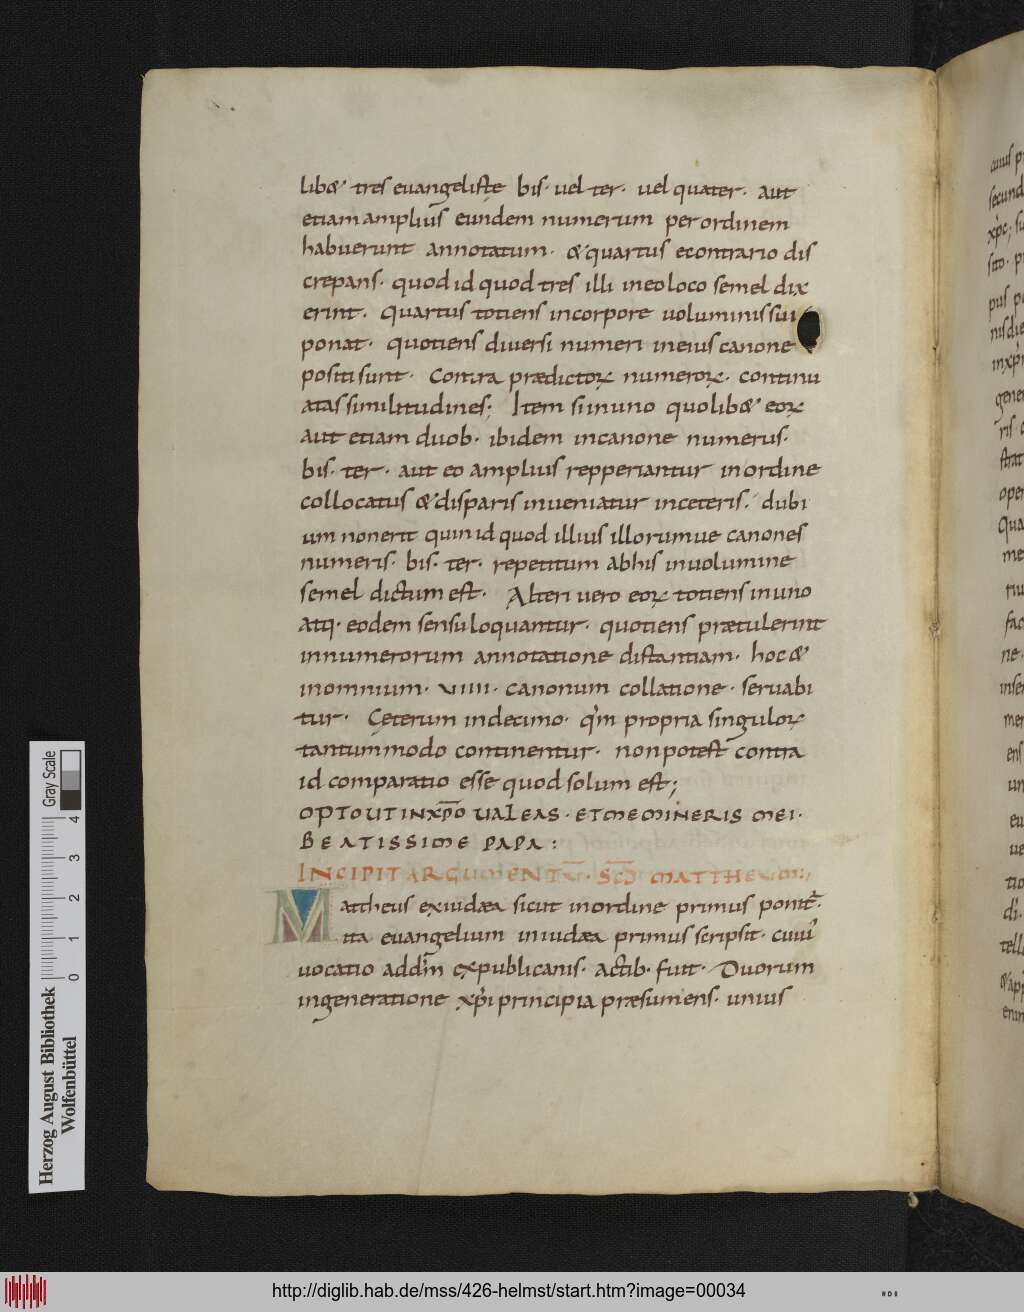 lib& tres euangeliste bis· uel ter· uel quater· aut
etiam amplius eundem numerum per ordinem
habuerunt annotatum· & quartus econtrario dis
crepans· quod id quod tres illi in eo loco semel dix
erint· quartus totiens in corpore uoluminis sui
ponat· quotiens diuersi numeri in eius canone
positi sunt· Contra prædictoꝝ numeroꝝ· continu
atas similitudines; Item si in uno quolib& eoꝝ
aut etiam duob· ibidem in canone numerus·
bis· ter· aut eo amplius repperiantur in ordine
collocatus & disparis inueniatur in ceteris· dubi
um non erit quin id quod illius illorumue canones
numeris· bis· ter· repetitum ab his in uolumine
semel dictum est· Alteri uero eoꝝ totiens in uno
atq· eodem sensu loquantur· quotiens prætulerint
in numerorum annotatione distantiam· hoc &
in omnium· VIIII· canonum collatione· seruabi
tur· Cęterum in decimo· qm̄ propria singuloꝝ
tantummodo continentur· non potest contra
id comparatio esse quod solum est;
OPTO UT IN XP̄O UALEAS· ET MEMINERIS MEI·
BEATISSIME PAPA:
INCIPIT ARGUMENTU̅· SC̄I MATTHEUM·
Mattheus ex iudæa sicut in ordine primus ponit̄·
ita euangelium in iudæa primus scripsit· cuius
uocatio ad dm̄ expublicanis· actib· fuit· Duorum
in generatione xp̄i principia præsumens· unius
cuius
secund
Herzog August Bibliothek
Wolfenbüttel
0 1 2 3 4
Gray Scale
http://diglib.hab.de/mss/426-helmst/start.htm?image=00034